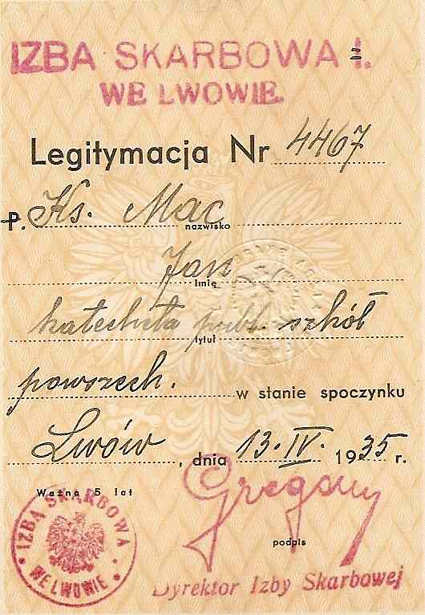 IZBA SKARBOWA I.
WE LWOWIE.
Legitymacja Nr 4467
P. Ks. Mac
nazwisko
Jan
imię
katecheta publ. szkół
tytuł
powszech. w stanie spoczynku
Lwów, dnia 13. IV. 1935 r.
Ważna 5 lat
podpis
IZBA SKARBOWA
WE LWOWIE
Dyrektor Izby Skarbowej